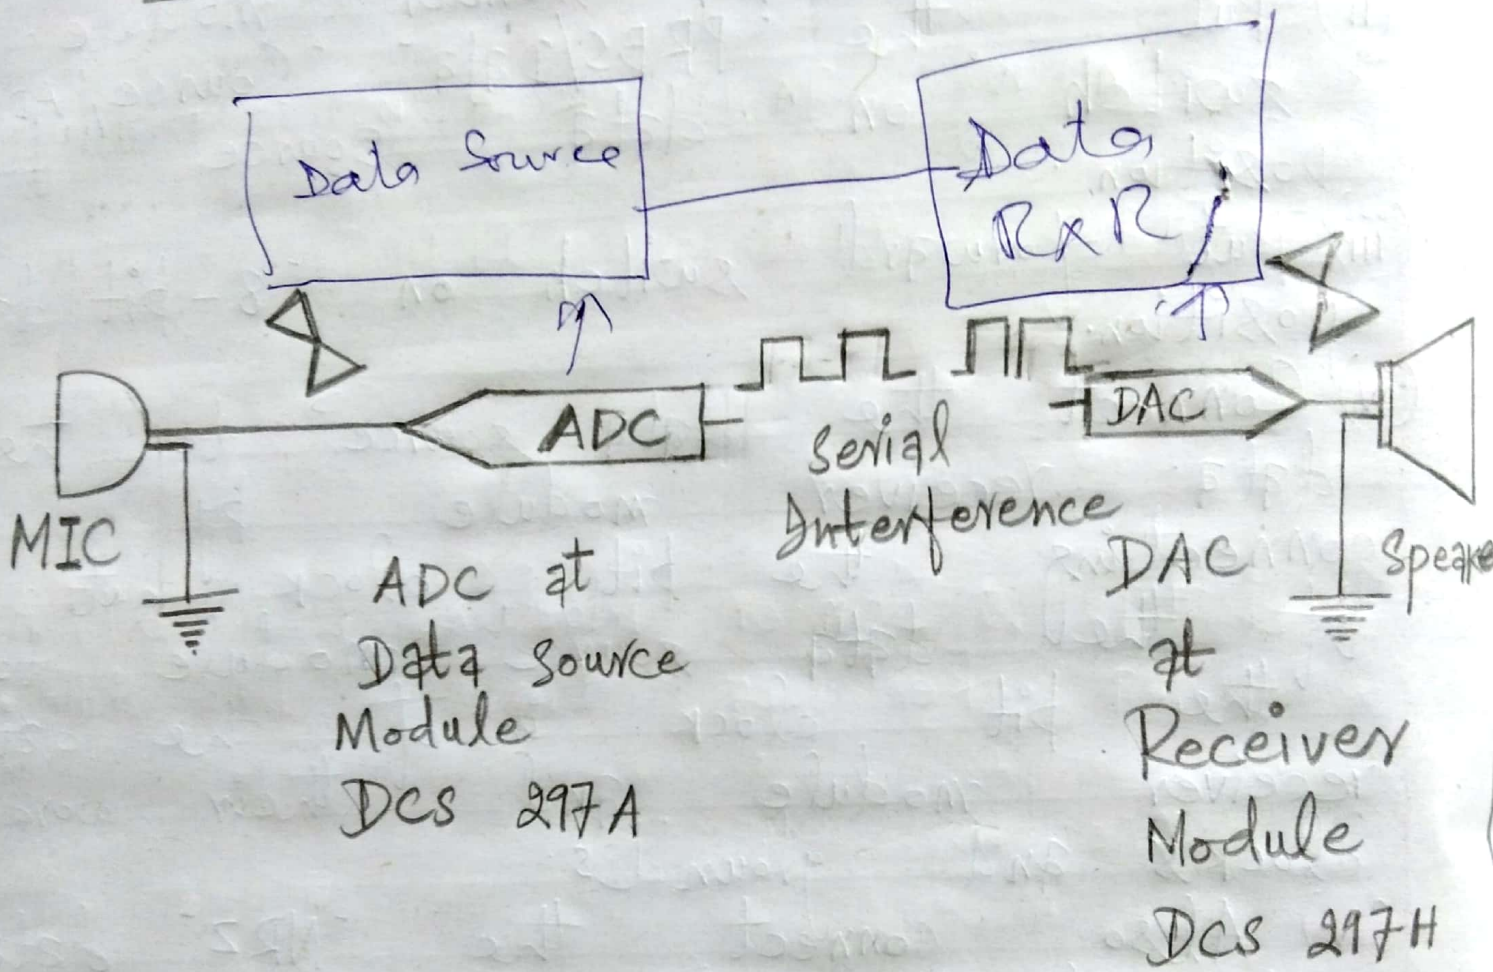 Data Source
Data
RxR
ADC
DAC
Serial
Interference
MIC
Speake
ADC at
Data Source
Module
DCS 297A
DAC
at
Receiver
Module
DCS 297H